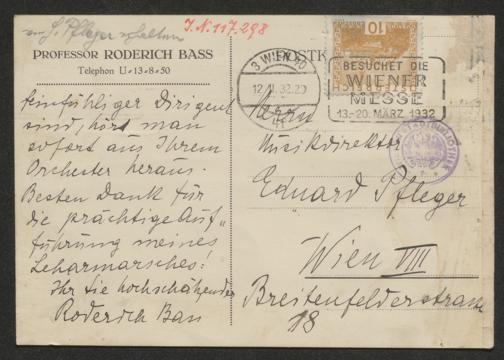 von E. Pfleger erhalten
J.N. 117.298
PROFESSOR RODERICH BASS
Telephon U-13-8-50
Einfühliger Dirigent
sind, hört man
sofort aus Ihrem
Orchester heraus.
Besten Dank für
die prächtige Auf„
führung meines
Leharmarsches!
Ihr Sie hochschätzender
Roderich Bass
POSTK
10
3 WIEN 40
12.II.32.20
BESUCHET DIE
WIENER
MESSE
13.-20. MÄRZ 1932
Herrn
Musikdirektor
Eduard Pfleger
Wien VIII
Breitenfelderstrasse
18